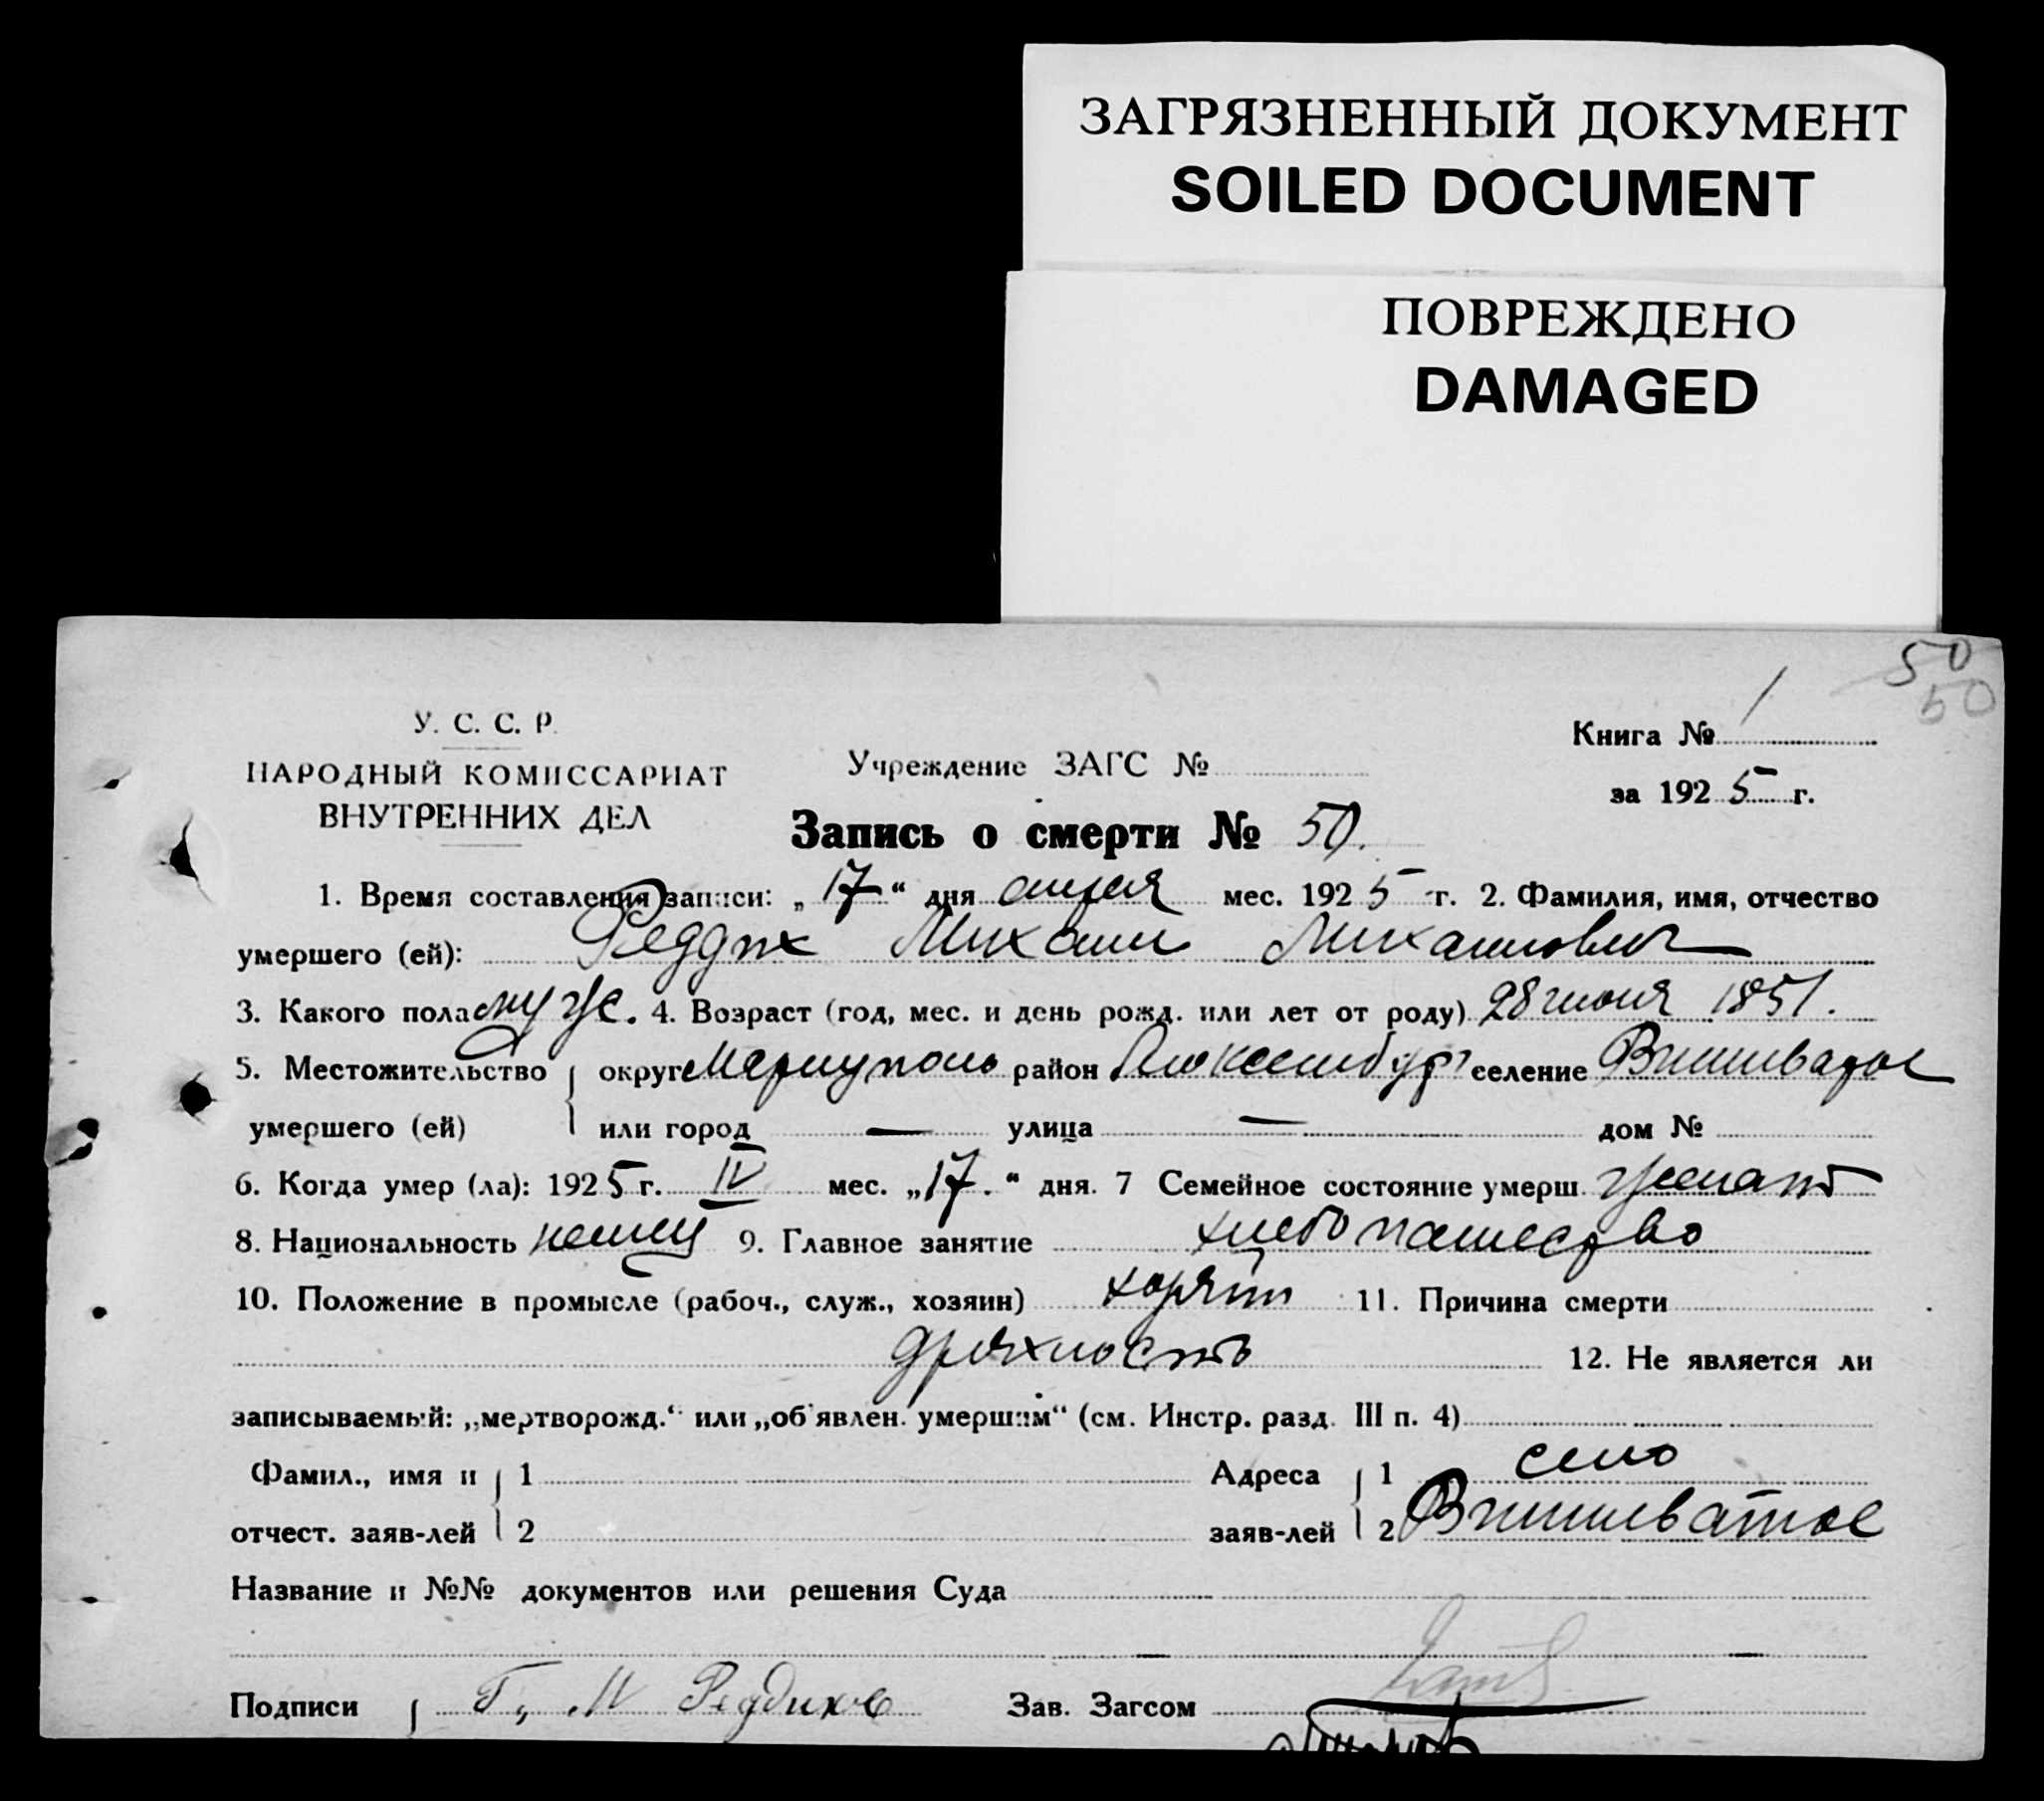 ЗАГРЯЗНЕННЫЙ ДОКУМЕНТ
SOILED DOCUMENT
ПОВРЕЖДЕНО
DAMAGED
50
50
У. С. С. Р.
НАРОДНЫЙ КОМИССАРИАТ
ВНУТРЕННИХ ДЕЛ
Учреждение ЗАГС №
Книга № 1
за 1925 г.
Запись о смерти № 50.
1. Время составления записи: „17“ дня апреля мес. 1925 г. 2. Фамилия, имя, отчество
умершего (ей): Реддих Михаил Михайлович
3. Какого пола муж. 4. Возраст (год, мес. и день рожд. или лет от роду) 28 июня 1851.
5. Местожительство округ Мариуполь район Люксембург селение
умершего (ей) или город — улица — дом №
6. Когда умер (ла): 1925 г. IV мес. „17.“ дня. 7 Семейное состояние умерш. женат
8. Национальность немец 9. Главное занятие хлебопашество
10. Положение в промысле (рабоч., служ., хозяин) хозяин 11. Причина смерти
дряхлость 12. Не является ли
записываемый: „мертворожд.“ или „об'явлен. умершим“ (см. Инстр. разд. III п. 4)
Фамил., имя и 1 Адреса 1 село
отчест. заяв-лей 2 заяв-лей 2
Название и №№ документов или решения Суда
Подписи Г. М Реддихов Зав. Загсом